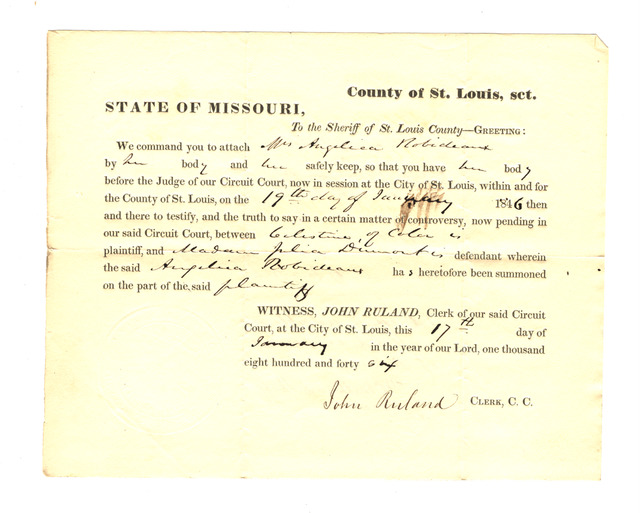 County of St. Louis, sct.
STATE OF MISSOURI,
To the Sheriff of St. Louis County—GREETING:
We command you to attach Mrs Angelica Robideaux
by her body and her safely keep, so that you have her body
before the Judge of our Circuit Court, now in session at the City of St. Louis, within and for
the County of St. Louis, on the 19th day of January 1846 then
and there to testify, and the truth to say in a certain matter of controversy, now pending in
our said Circuit Court, between Celestine, of Color is
plaintiff, and Madam Julia Dumont is defendant wherein
the said Angelica Robideaux has heretofore been summoned
on the part of the said plaintiff
WITNESS, JOHN RULAND, Clerk of our said Circuit
Court, at the City of St. Louis, this 17th day of
January in the year of our Lord, one thousand
eight hundred and forty six
John Ruland CLERK, C. C.